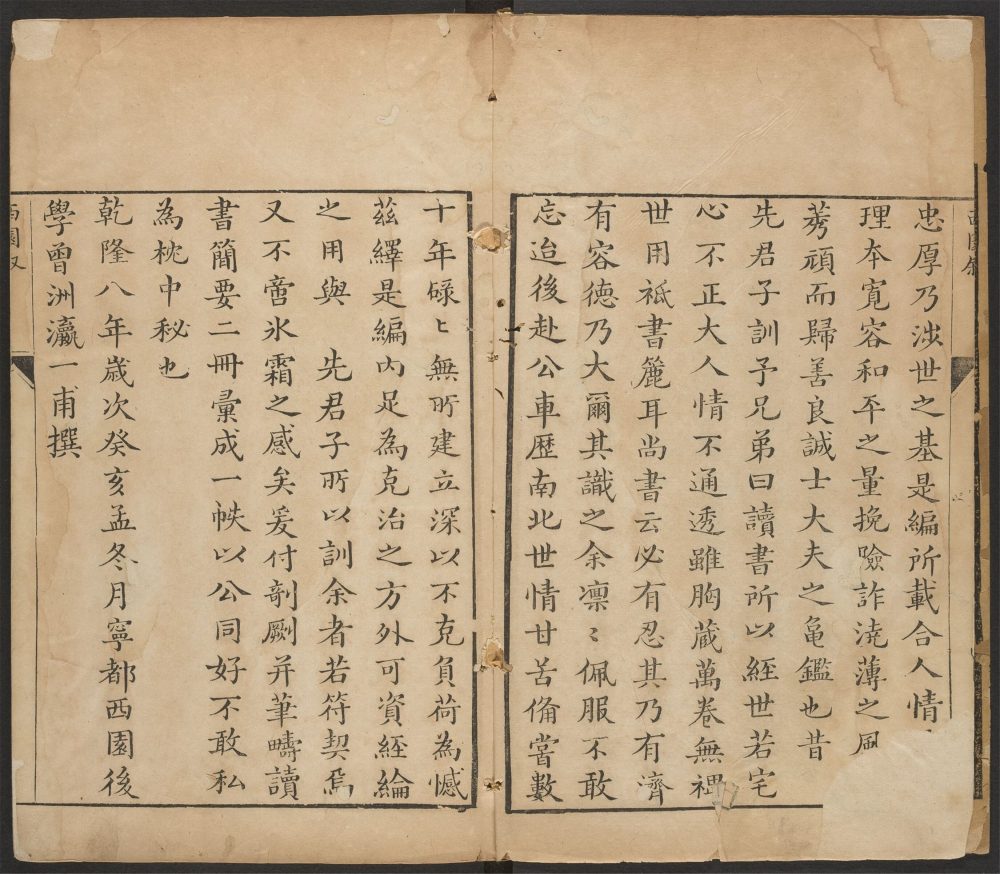 忠厚乃涉世之基是編所載合人情
理本寬容和平之量挽險詐澆薄之風
莠頑而歸善良誠士大夫之龜鑑也昔
先君子訓予兄弟曰讀書所以經世若宅
心不正大人情不通透雖胸蔵萬卷無裨
世用祗書簏耳尚書云必有忍其乃有濟
有容德乃大爾其識之余凛〻佩服不敢
忘迨後赴公車歴南北世情甘苦俻嘗數
十年碌〻無所建立深以不克負荷為憾
茲繹是編内足為克治之方外可資經綸
之用與　先君子所以訓余者若符契焉
又不啻氷霜之感矣爰付剞劂并筆疇讀
書簡要二冊彙成一帙以公同好不敢私
為枕中秘也
乾隆八年歲次癸亥孟冬月寧都西園後
學曾洲瀛一甫撰
西園叙